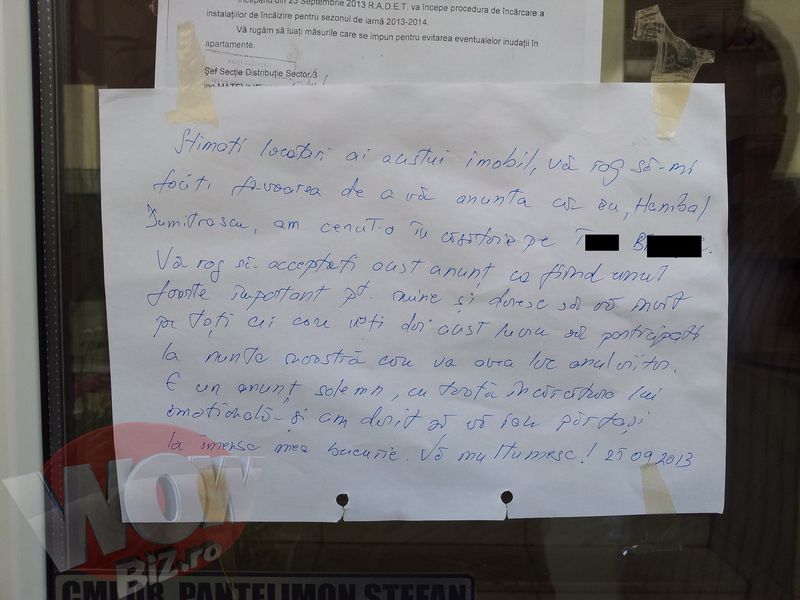 Începând din 23 Septembrie 2013 R.A.D.E.T. va începe procedura de încărcare a
instalațiilor de încălzire pentru sezonul de iarnă 2013-2014.
Vă rugăm să luați măsurile care se impun pentru evitarea eventualelor inudații în
apartamente.
Șef Secție Distribuție Sector 3
Stimați locatari ai acestui imobil, vă rog să-mi
faceți favoarea de a vă anunta că eu, Hanibal
Dumitrascu, am cerut-o în căsătorie pe T B
Vă rog să acceptați acest anunț ca fiind unul
foarte important pt. mine și doresc să vă invit
pe toți cei care veți dori acest lucru să participați
la nunta noastră care va avea loc anul viitor.
E un anunț solemn, cu toată încărcătura lui
emoțională - și am dorit să vă fac părtași
la imensa mea bucurie. Vă mulțumesc! 25 09 2013
WOW
Biz.ro
PANTELIMON STEFAN